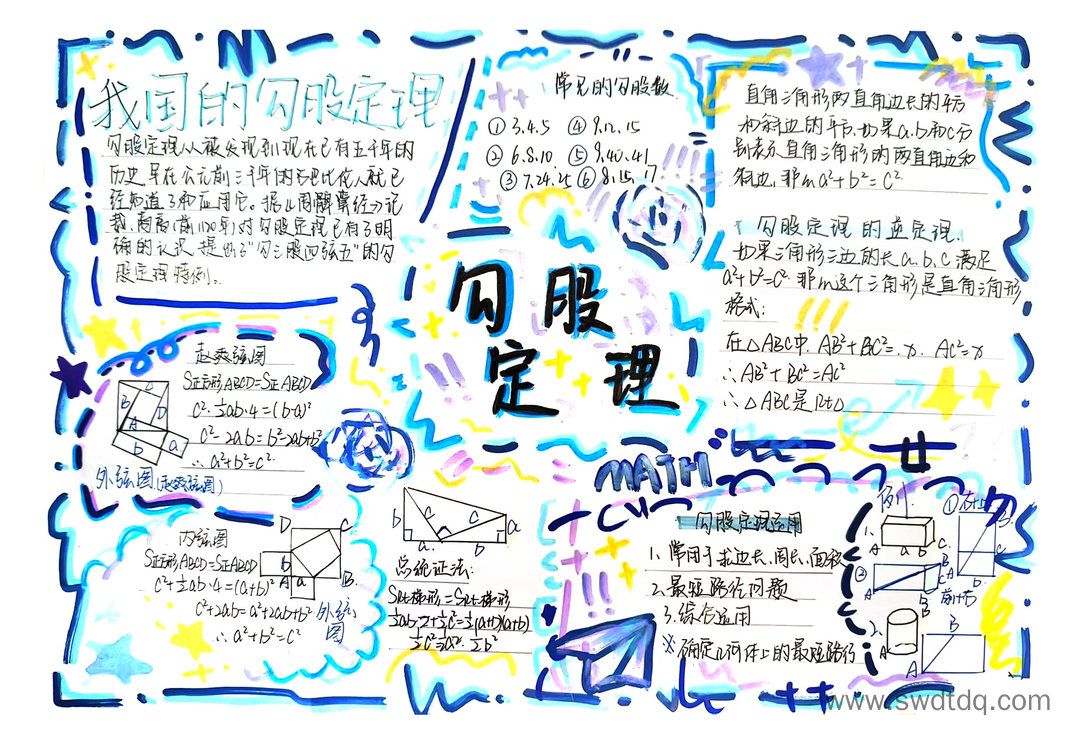 我国的勾股定理
勾股定理从被发现到现在已有五千年的
历史,早在公元前三千年的古巴比伦人就已
经知道了和应用它,据《周髀算经》记
载,商高(前1120年)对勾股定理已有了明
确的认识,提出了"勾三股四弦五"的勾
股定理特例。
常见的勾股数
①3.4.5 ④9.12.15
②6.8.10 ⑤9.40.41
③7.24.25 ⑥8.15.17
直角三角形两直角边长的平方
和斜边的平方.如果a.b和c分
别表示直角三角形的两直角边和
斜边,那么a²+b²=c²
勾股定理的逆定理.
如果三角形三边的长a.b.c满足
a²+b²=c² 那么这个三角形是直角三角形
格式:
在△ABC中,AB²+BC²=x. AC²=x
∴AB²+BC²=AC²
∴△ABC是Rt△
勾股
定理
赵爽弦图
S正方形ABCD=S正ABCD
c²-½ab·4=(b-a)²
c²-2ab=b²-2ab+b²
∴a²+b²=c².
c
B
D
A
b
a
外弦图(赵爽弦图)
内弦图
S正方形ABCD=S正ABCD
c²+½ab·4=(a+b)²
c²+2ab=a²+2ab+b²
∴a²+b²=c²
D
C
b
A
a
B
外弦
图
b
c
c
a
a
b
总统证法:
½ab·2+½c²=½(a+b)(a+b)
½c²=½a²·½b²
MATH
勾股定理运用
1.常用于求边长、周长、面积
2.最短路径问题
3.综合运用
※确定几何体上的最短路径
例
1.
A a b C
①右+上
B
A
b
C
②
A
B
B
前+右
2.
B
A
B
A
www.swdtdq.com